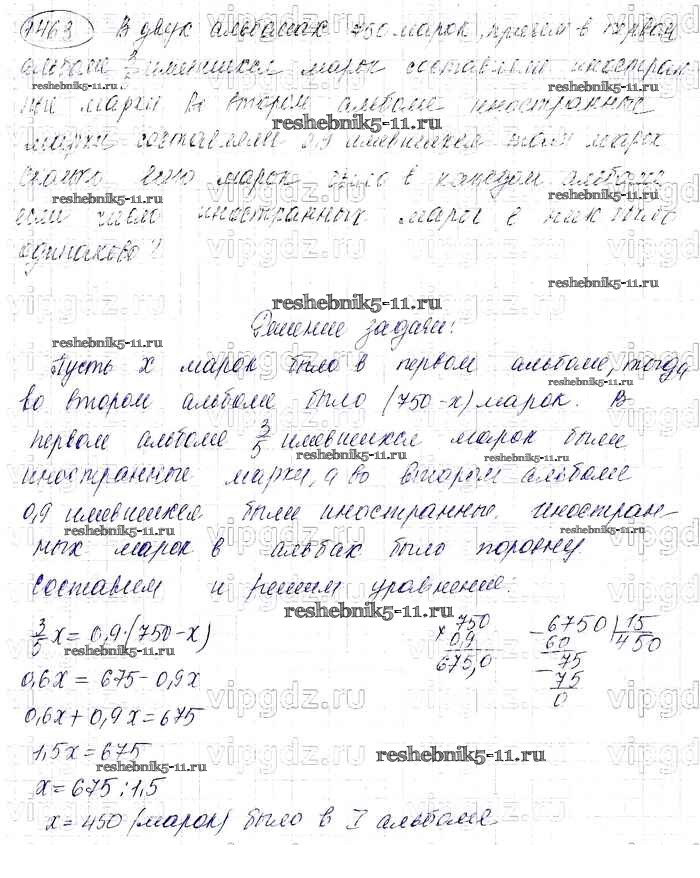 1463 В двух альбомах 750 марок, причем в первом
альбоме 3/5 имевшихся марок составляли иностран
ные марки. Во втором альбоме иностранные
марки составляли 0,9 имевшихся там марок
Сколько всего марок было в каждом альбоме
если число иностранных марок в них было
одинаково?
Решение задачи:
Пусть x марок было в первом альбоме, тогда
во втором альбоме было (750-x) марок. В
первом альбоме 3/5 имевшихся марок были
иностранные марки, а во втором альбоме
0,9 имевшихся были иностранные иностран-
ных марок в альбах было поровну
Составим и решим уравнение:
3/5x = 0,9·(750-x)
0,6x = 675-0,9x
0,6x+0,9x=675
1,5x=675
x=675:1,5
x=450 (марок) было в I альбоме
× 750
0,9
675,0
6750 | 15
60 | 450
75
75
0
reshebnik5-11.ru
vipgdz.ru